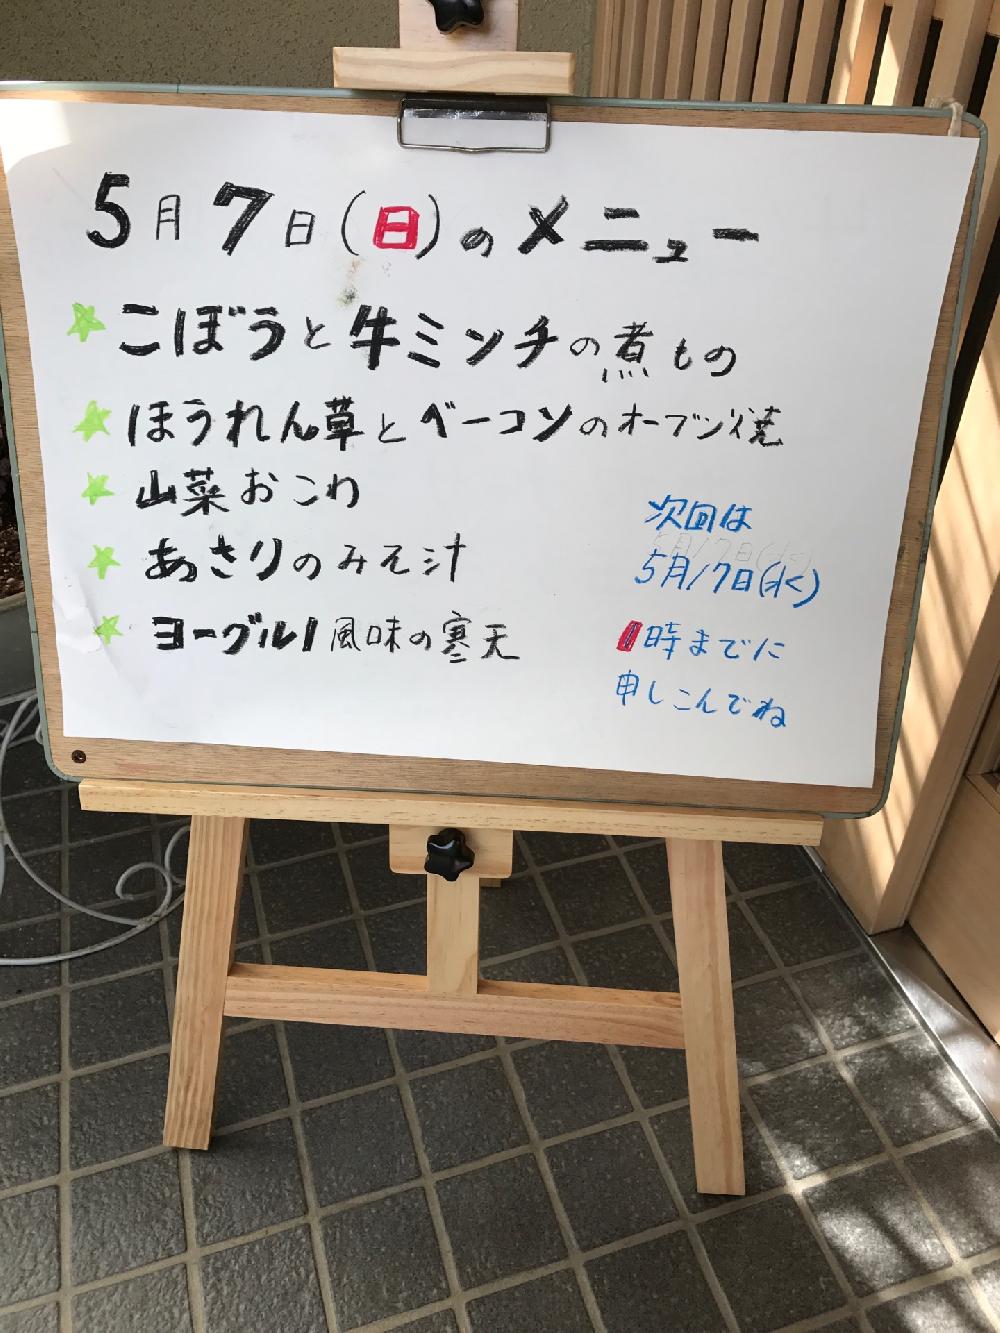 5月7日(日)のメニュー
こぼうと牛ミンチの煮もの
ほうれん草とベーコンのオーブン焼
山菜おこわ
あさりのみそ汁
ヨーグルト風味の寒天
次回は
5月17日(水)
1時までに
申しこんでね